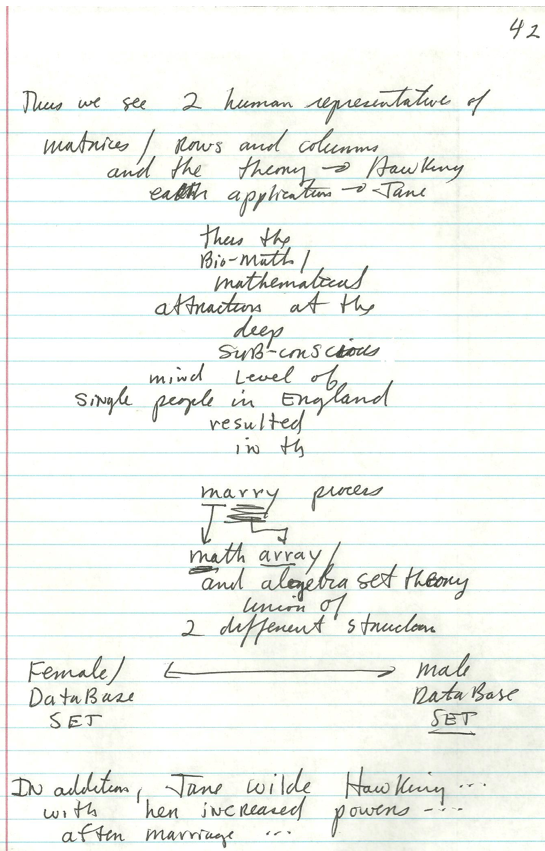 42
Thus we see 2 human representative of
matrices / rows and columns
and the theory → Hawking
earth application → Jane
thus the
Bio-Math /
mathematical
attraction at the
deep
SUB-conscious
mind Level of
single people in England
resulted
in th
marry process
math array /
and algebra set theory
union of
2 different structures
Female / ↔ male
DataBase DataBase
SET SET
IN addition, Jane Wilde Hawking ...
with her increased powers ....
after marriage ...